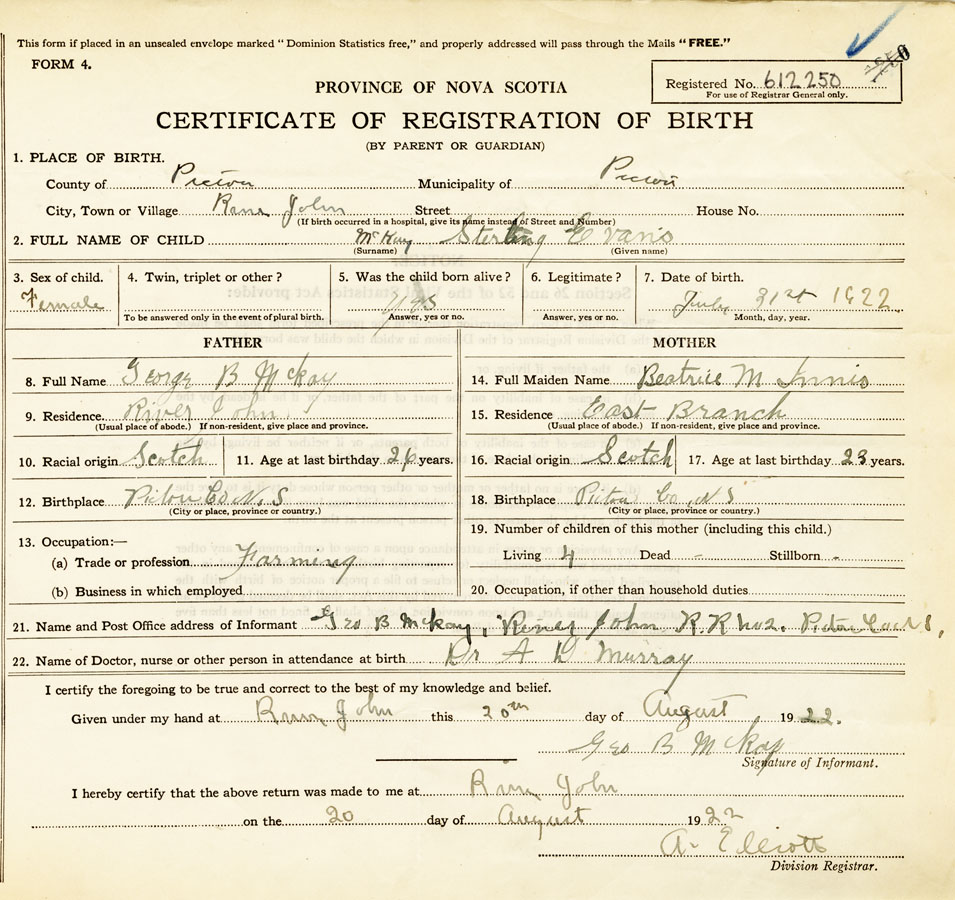 This form if placed in an unsealed envelope marked "Dominion Statistics free," and properly addressed will pass through the Mails "FREE."
FORM 4.
Registered No. 612250
For use of Registrar General only.
PROVINCE OF NOVA SCOTIA
CERTIFICATE OF REGISTRATION OF BIRTH
(BY PARENT OR GUARDIAN)
1. PLACE OF BIRTH.
County of Pictou Municipality of Pictou
City, Town or Village River John Street House No.
(If birth occurred in a hospital, give its name instead of Street and Number)
2. FULL NAME OF CHILD McKay Sterling Evans
(Surname) (Given name)
3. Sex of child. 4. Twin, triplet or other? 5. Was the child born alive? 6. Legitimate? 7. Date of birth.
Female yes July 31st 1922
To be answered only in the event of plural birth. Answer, yes or no. Answer, yes or no. Month, day, year.
FATHER MOTHER
8. Full Name George B McKay 14. Full Maiden Name Beatrice M Innis
9. Residence. River John 15. Residence East Branch
(Usual place of abode.) If non-resident, give place and province. (Usual place of abode.) If non-resident, give place and province.
10. Racial origin Scotch 11. Age at last birthday 26 years. 16. Racial origin Scotch 17. Age at last birthday 23 years.
12. Birthplace Pictou Co N.S 18. Birthplace Pictou Co N.S
(City or place, province or country.) (City or place, province or country.)
19. Number of children of this mother (including this child.)
13. Occupation:—
Living 4 Dead - Stillborn -
(a) Trade or profession Farming
(b) Business in which employed 20. Occupation, if other than household duties
21. Name and Post Office address of Informant Geo B McKay, River John R.R No2. Pictou Co N S,
22. Name of Doctor, nurse or other person in attendance at birth Dr A D Murray
I certify the foregoing to be true and correct to the best of my knowledge and belief.
Given under my hand at River John this 20th day of August 1922.
Geo B McKay
Signature of Informant.
I hereby certify that the above return was made to me at River John
on the 20 day of August 1922
A. Elliott
Division Registrar.